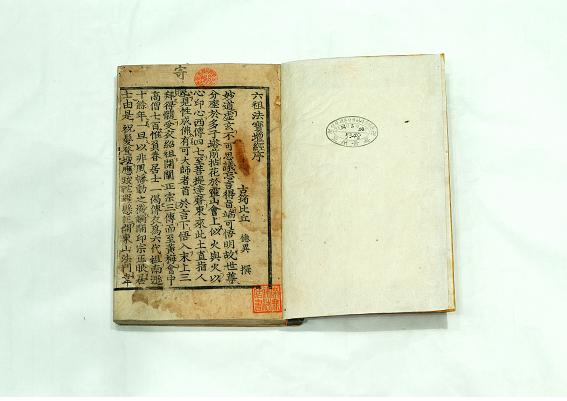 寄
六祖法寶壇經序
古筠比丘 德異 撰
妙道虛玄不可思議忘言得旨端可悟明故世尊
分座於多子塔前拈花於靈山會上似火與火以
心印心西傳四七至菩提達磨東來此土直指人
心見性成佛有可大師者首於言下悟入末上三
拜得髓受衣紹祖開闡正宗三傳而至黃梅會中
高僧七百惟負舂居士一偈傳衣爲六代祖南遯
十餘年一旦以非風旛動之機觸開印宗正眼居
士由是祝髮登壇應跋陀羅懸記開東山法門韋